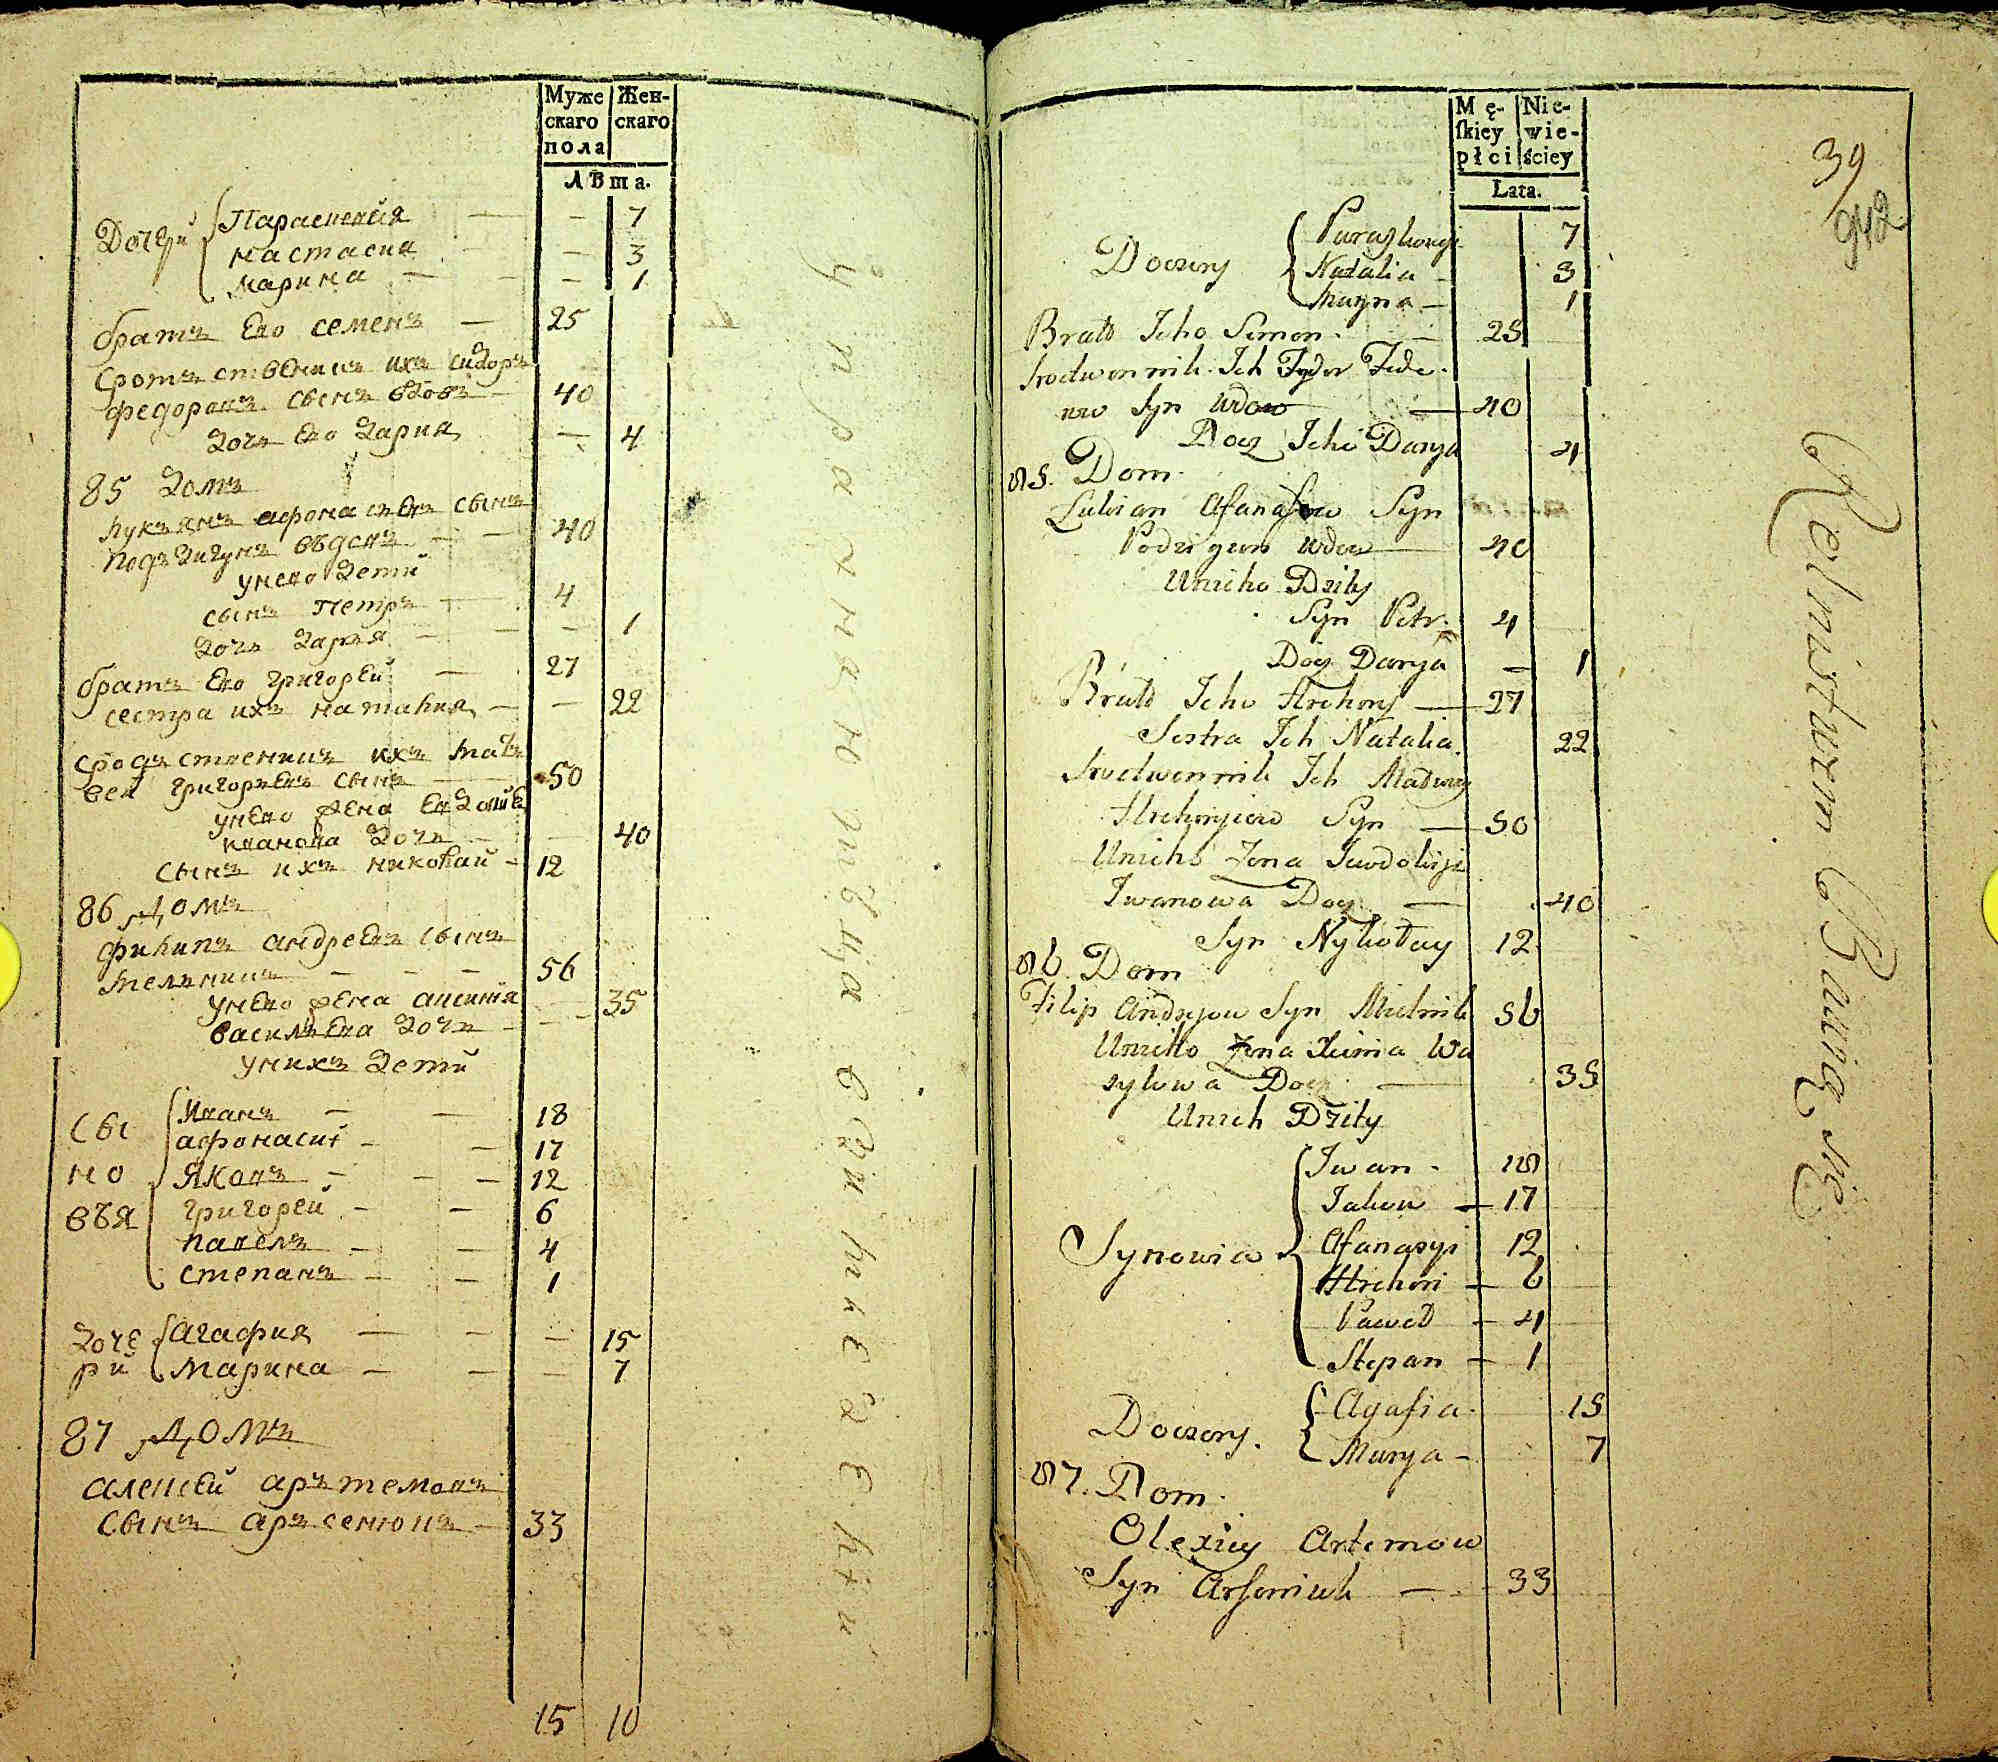 Муже
скаго
пола
Жен-
скаго
ЛѢта.
Дочери
Параскевия — — 7
настасия — — 3
марина — — 1
братъ Ево семенъ — 25
сротственикъ ихъ сидоръ
федоровъ сынъ вдовъ — 40
дочь Ево дария — 4
85 домъ
лукянъ афонасиевъ сынъ
подзигунъ вдовъ — — 40
унево дети
сынъ петръ — 4
дочь даря — — 1
братъ Ево григорей — 27
сестра ихъ наталия — — 22
сродственикъ ихъ мат
вей григорьевъ сынъ — 50
унево жена Евдокия
иванова дочь — — 40
сынъ ихъ николай — 12
86 Домъ
филипъ андреевъ сынъ
мелникъ — — — 56
унево жена аксиния — 35
василева дочь — — —
унихъ дети
Сы
но
вья
Иванъ — — 18
афонасий — — 17
Яковъ — — — 12
григорей — — 6
павелъ — — 4
степанъ — — 1
доче
ри
агафия — — — 15
марина — — — 7
87 Домъ
алексей артемовъ
сынъ арсенюкъ — 33
15 10
Mę-
ſkiey
płci
Nie-
wie-
ściey
Lata.
39
942
Doczery
Paraſkowyi 7
Natalia — 3
Maryna — 1
Bratt Jeho Semen — 25
Srodwennik Ich Sydor Fede-
row Syn Wdow — 40
Docz Jeho Darya 4
85. Dom
Lukian Afanaſow Syn
Podzigun Wdow — 40
Unieho Dzity
Syn Petr. 4
Docz Darya — 1
Bratt Jeho Hrehory — 27
Sestra Ich Natalia. 22
Srodwennik Ich Matwey
Hrehoryiow Syn — 50
Unieho Zona Jawdokiyia
Iwanowa Docz — 40
Syn Nykołay 12
86. Dom
Filip Andryow Syn Mielnik 56
Unieho Zona Xienia Wa
sylowa Docz — 35
Unich Dzity
Synowie
Iwan — 18
Jakow — 17
Afanasyi 12
Hrehori — 6
Paweł — 4
Stepan — 1
Doczery.
Agafia — 15
Marya — 7
87. Dom
Olexiey Artemow
Syn Arſoniuk — 33